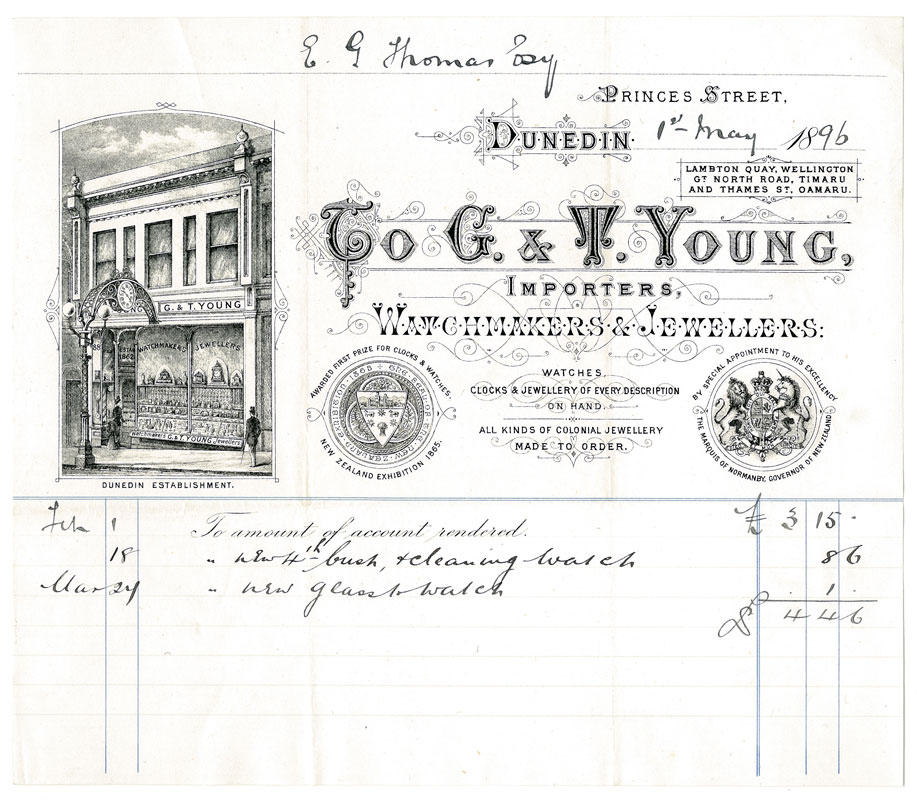 E. G Thomas Esq
PRINCES STREET,
DUNEDIN. 1st May 1896
LAMBTON QUAY, WELLINGTON
GT NORTH ROAD, TIMARU
AND THAMES ST, OAMARU.
TO G. & T. YOUNG,
IMPORTERS,
WATCHMAKERS & JEWELLERS:
G. & T. YOUNG
ESTAB
1862
WATCHMAKERS JEWELLERS
Watchmakers G. & T. YOUNG Jewellers
DUNEDIN ESTABLISHMENT.
AWARDED FIRST PRIZE FOR CLOCKS & WATCHES.
NEW ZEALAND EXHIBITION 1865.
WATCHES,
CLOCKS & JEWELLERY OF EVERY DESCRIPTION
ON HAND.
ALL KINDS OF COLONIAL JEWELLERY
MADE TO ORDER.
BY SPECIAL APPOINTMENT TO HIS EXCELLENCY
THE MARQUIS OF NORMANBY, GOVERNOR OF NEW ZEALAND
Feb 1 To amount of account rendered. £ 3 15 .
18 " new 4th bush, & cleaning watch 8 6
Mar 24 " new glass to watch . 1 .
4 4 6